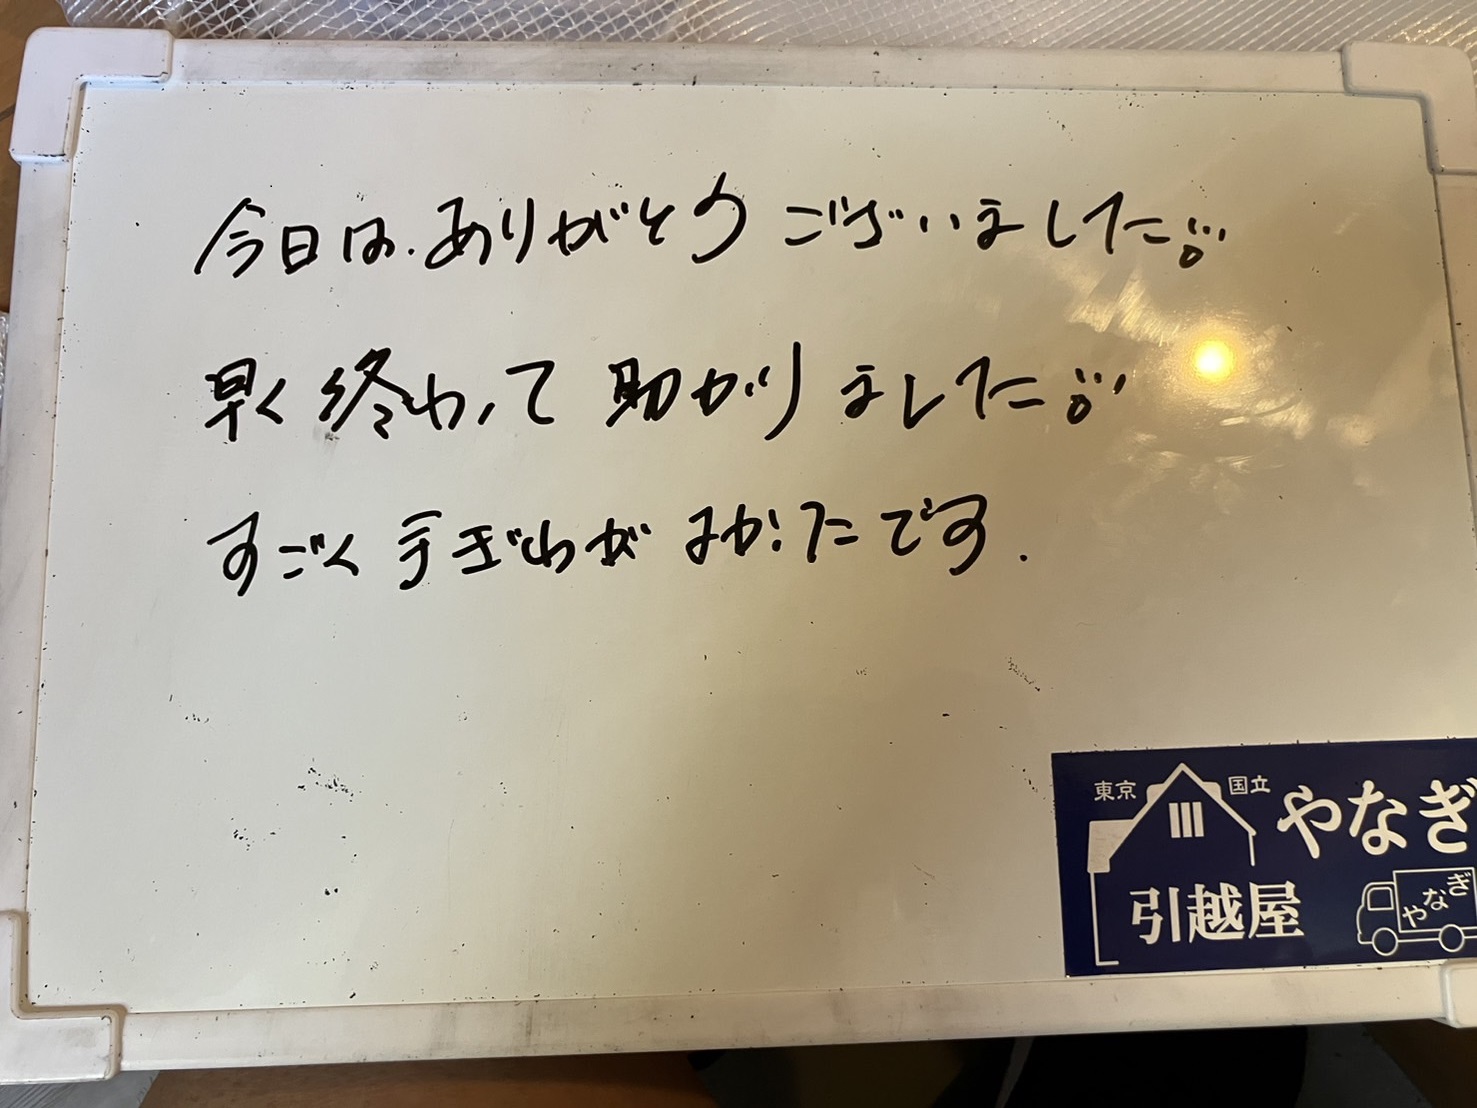 今日は.ありがとうございました!!
早く終わって助かりました!!
すごく手ぎわがよかったです.
東京 国立 やなぎ
引越屋
やなぎ